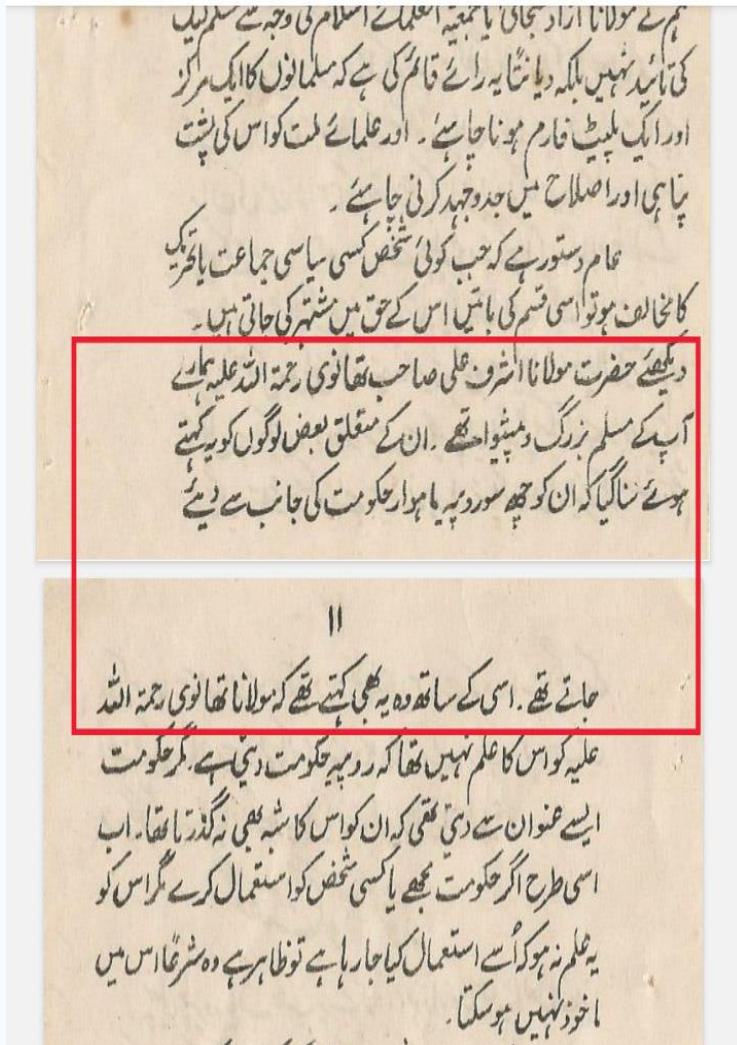 ہم نے مولانا آزاد سبحانی یا جمعیۃ العلمائے اسلام کی وجہ سے مسلم لیگ
کی تائید نہیں بلکہ دیانتًا یہ رائے قائم کی ہے کہ مسلمانوں کا ایک مرکز
اور ایک پلیٹ فارم ہونا چاہئے ۔ اور علمائے ملت کو اس کی پشت
پناہی اور اصلاح میں جدوجہد کرنی چاہئے ۔
عام دستور ہے کہ جب کوئی شخص کسی سیاسی جماعت یا تحریک
کا مخالف ہو تو اسی قسم کی باتیں اس کے حق میں مشتہر کی جاتی ہیں ۔
دیکھئے حضرت مولانا اشرف علی صاحب تھانوی رحمۃ اللہ علیہ ہمارے
آپ کے مسلم بزرگ و پیشوا تھے ۔ ان کے متعلق بعض لوگوں کو یہ کہتے
ہوئے سنا گیا کہ ان کو چھ سو روپیہ ماہوار حکومت کی جانب سے دیئے
۱۱
جاتے تھے ۔ اسی کے ساتھ وہ یہ بھی کہتے تھے کہ مولانا تھانوی رحمۃ اللہ
علیہ کو اس کا علم نہیں تھا کہ روپیہ حکومت دیتی ہے ۔ مگر حکومت
ایسے عنوان سے دیتی تھی کہ ان کو اس کا شبہ بھی نہ گذرتا تھا ۔ اب
اسی طرح اگر حکومت مجھے یا کسی شخص کو استعمال کرے مگر اس کو
یہ علم نہ ہو کہ اُسے استعمال کیا جا رہا ہے تو ظاہر ہے وہ شرعًا اس میں
ماخوذ نہیں ہو سکتا ۔